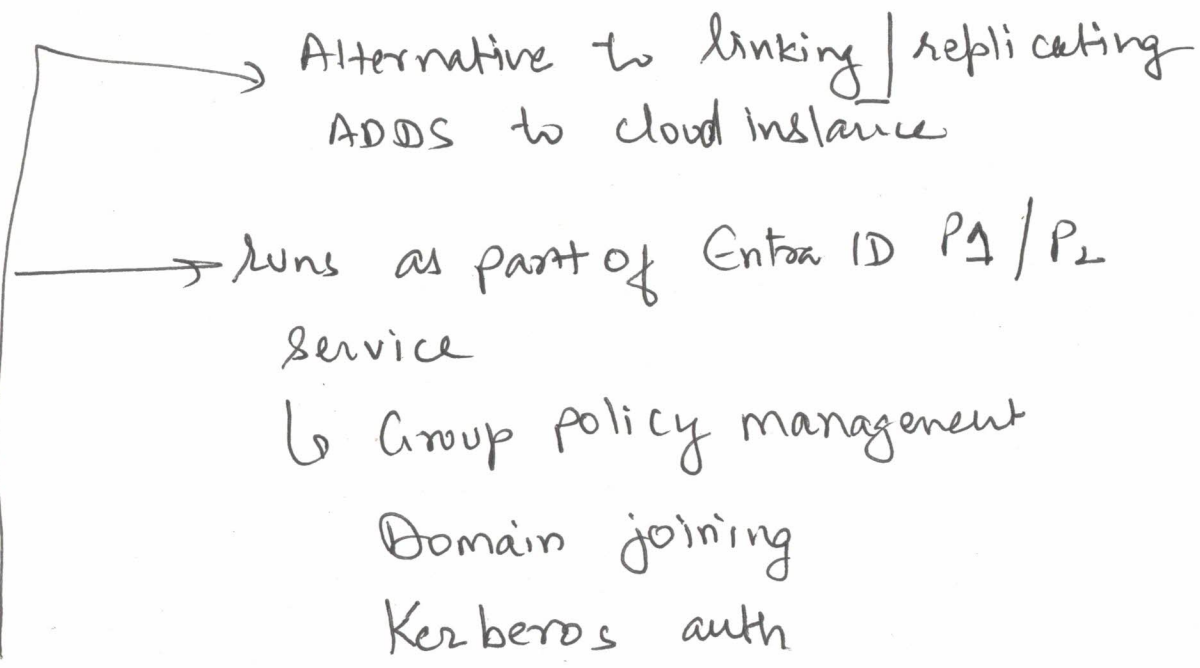 Alternative to linking/replicating
ADDS to cloud instance
runs as part of Entra ID P1/P2
service
Group policy management
Domain joining
Kerberos auth